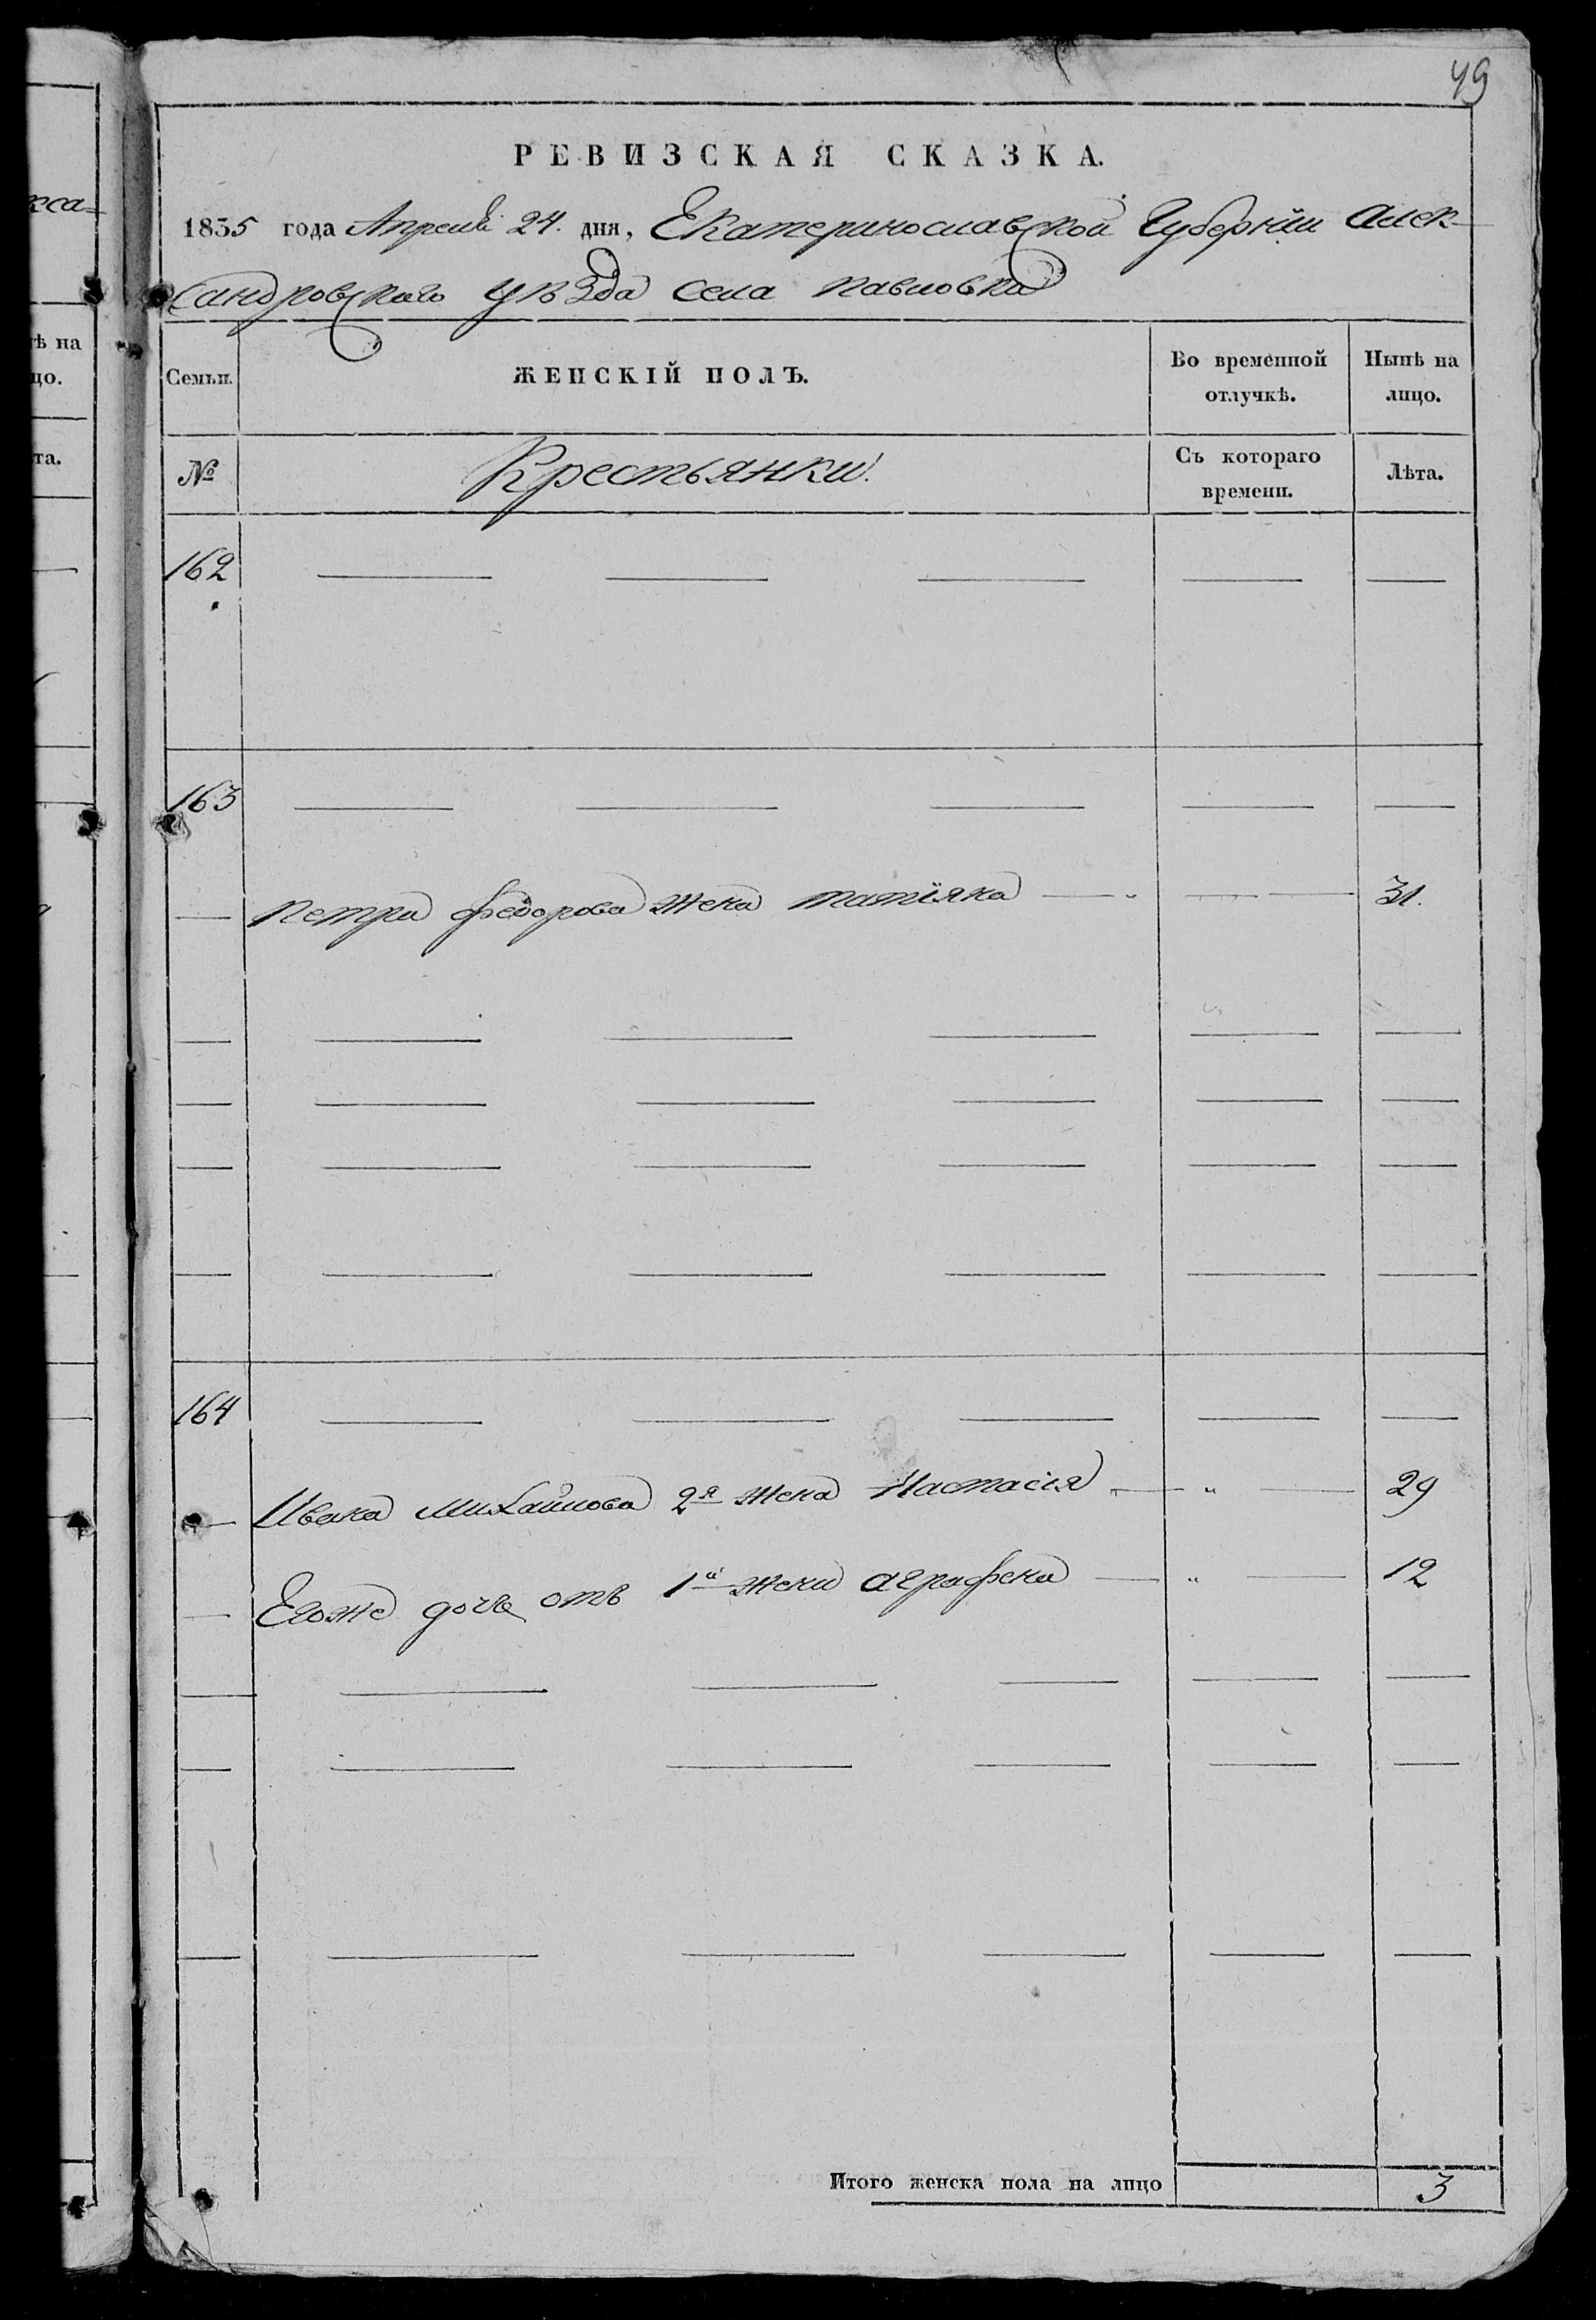 49
РЕВИЗСКАЯ СКАЗКА.
1835 года Апреля 24. дня, Екатеринославской Губернiи Алек-
сандровского уѣзда села Павловки
Семьи.
ЖЕНСКІЙ ПОЛЪ.
Во временной отлучкѣ.
Нынѣ на лицо.
№
Крестьянки.
Съ котораго времени.
Лѣта.
162
163
Петра Федорова жена Татiяна 31.
164
Ивана Михайлова 2я жена Настасiя " 29
Егоже дочь отъ 1й жены Аграфена " 12
Итого женска пола на лицо 3